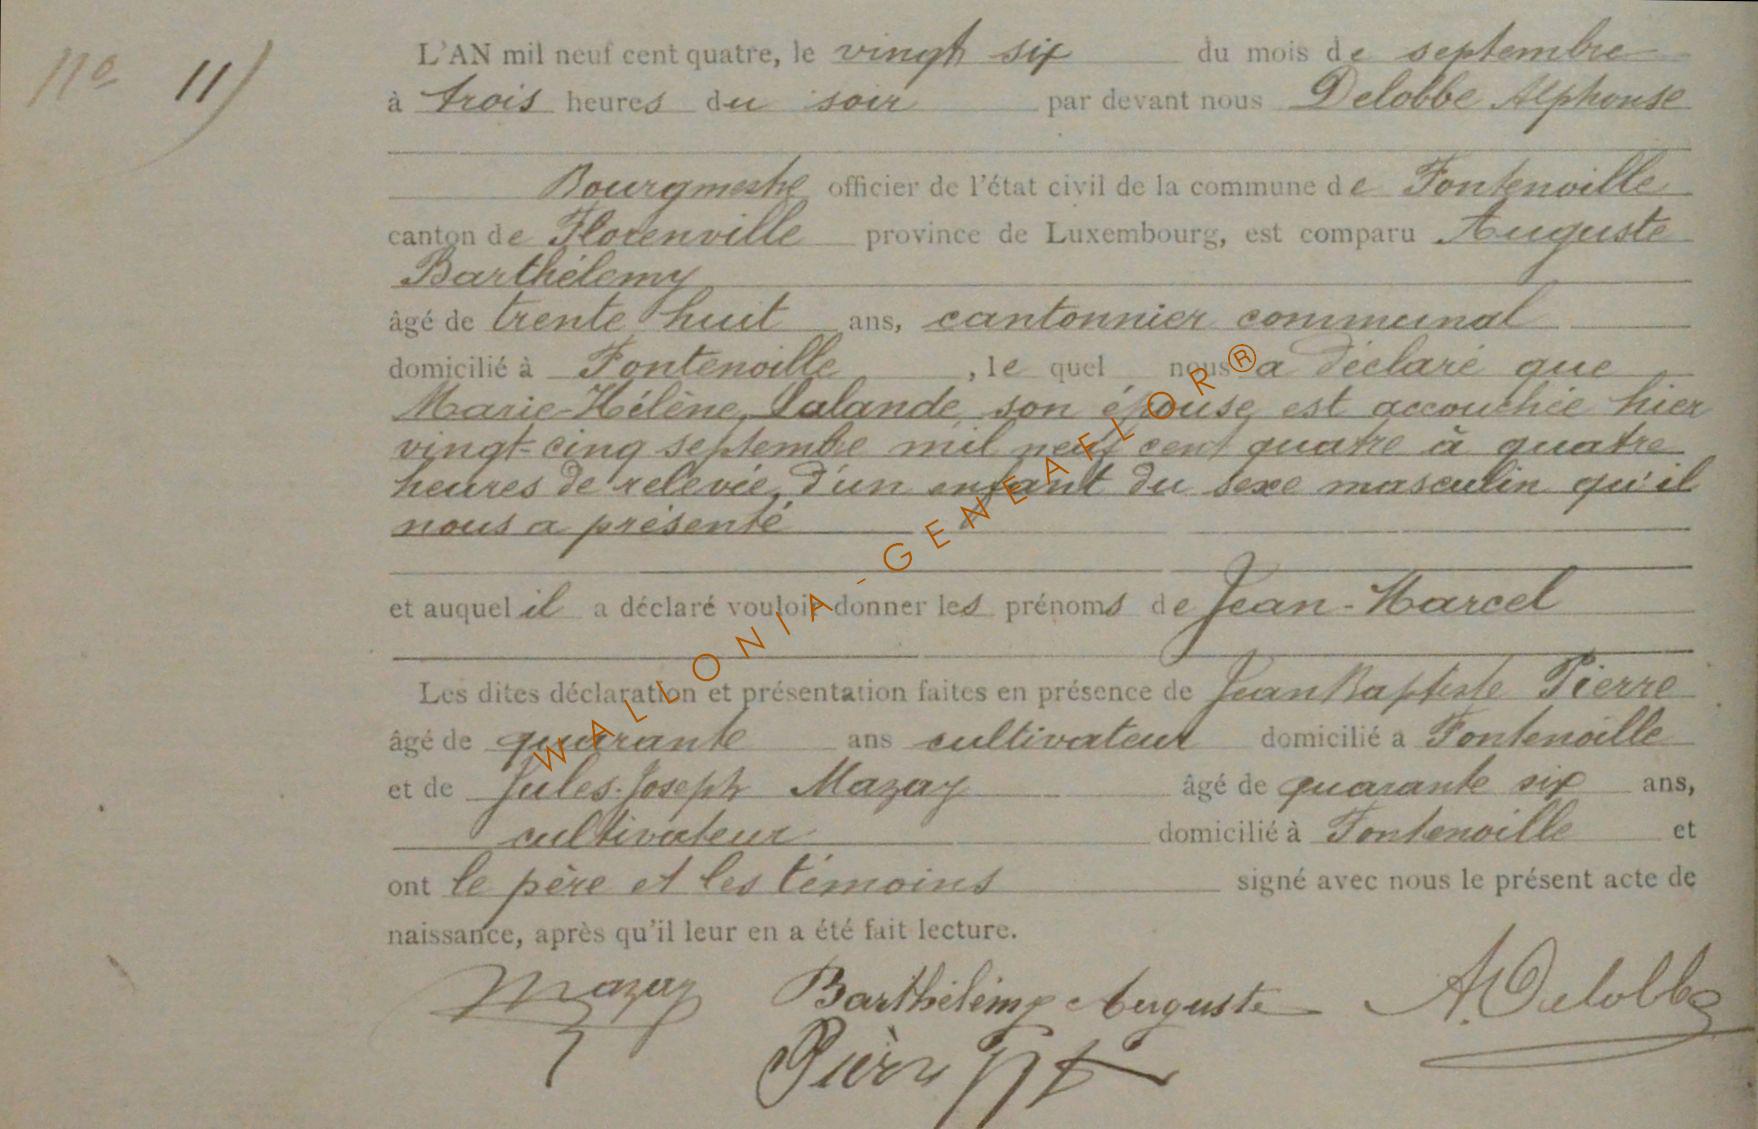 No 11)
L'AN mil neuf cent quatre, le vingt six du mois de septembre
à trois heures du soir par devant nous Delobbe Alphonse
Bourgmestre officier de l'état civil de la commune de Fontenoille
canton de Florenville province de Luxembourg, est comparu Auguste
Barthélemy
âgé de trente huit ans, cantonnier communal
domicilié à Fontenoille, le quel nous a déclaré que
Marie-Hélène Lalande son épouse est accouchée hier
vingt-cinq septembre mil neuf cent quatre à quatre
heures de relevée, d'un enfant du sexe masculin qu'il
nous a présenté
et auquel il a déclaré vouloir donner les prénoms de Jean-Marcel
Les dites déclaration et présentation faites en présence de Jean Baptiste Pierre
âgé de quarante ans cultivateur domicilié a Fontenoille
et de Jules-Joseph Mazay âgé de quarante six ans,
cultivateur domicilié à Fontenoille et
ont le père et les témoins signé avec nous le présent acte de
naissance, après qu'il leur en a été fait lecture.
Mazay Barthélémy Auguste A. Delobbe
Pierre
WALLONIA-GENEAFLOR®